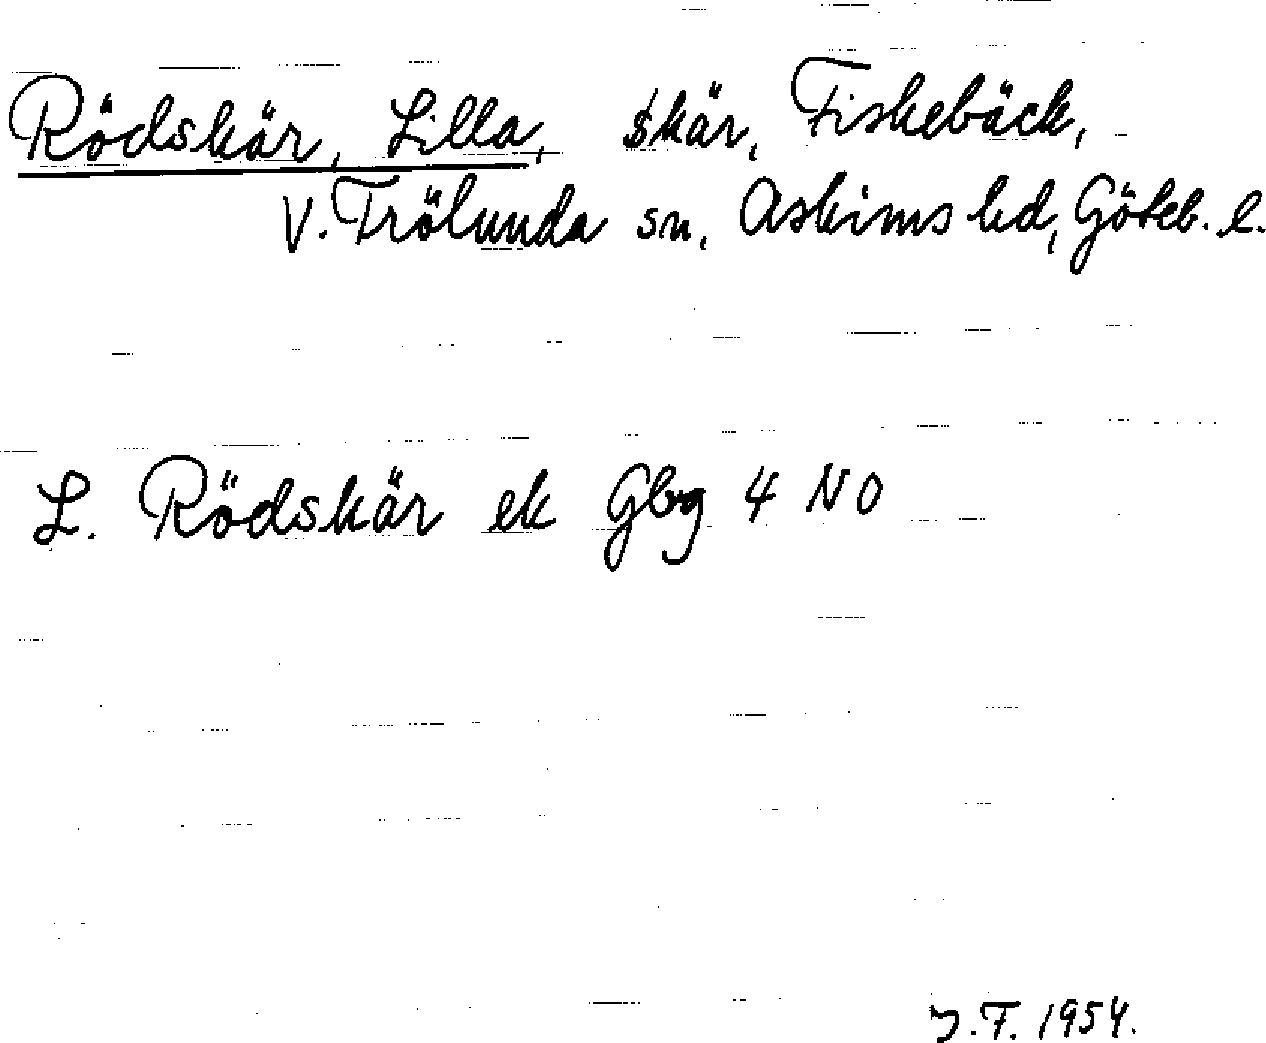 Rödskär, Lilla, skär, Fiskebäck,
V. Frölunda sn, Askims hd, Göteb. l.
L. Rödskär ek Gbg 4 NO
J.F. 1954.